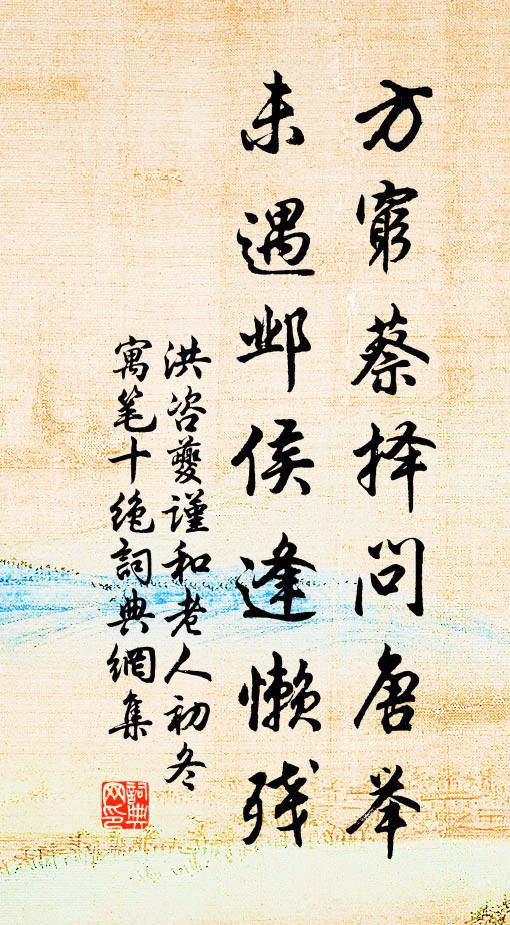 方窮蔡择问唐举
未遇邺侯逢懒残
洪咨夔谨和老人初冬
寓笔十绝詞典網集
詞典網印